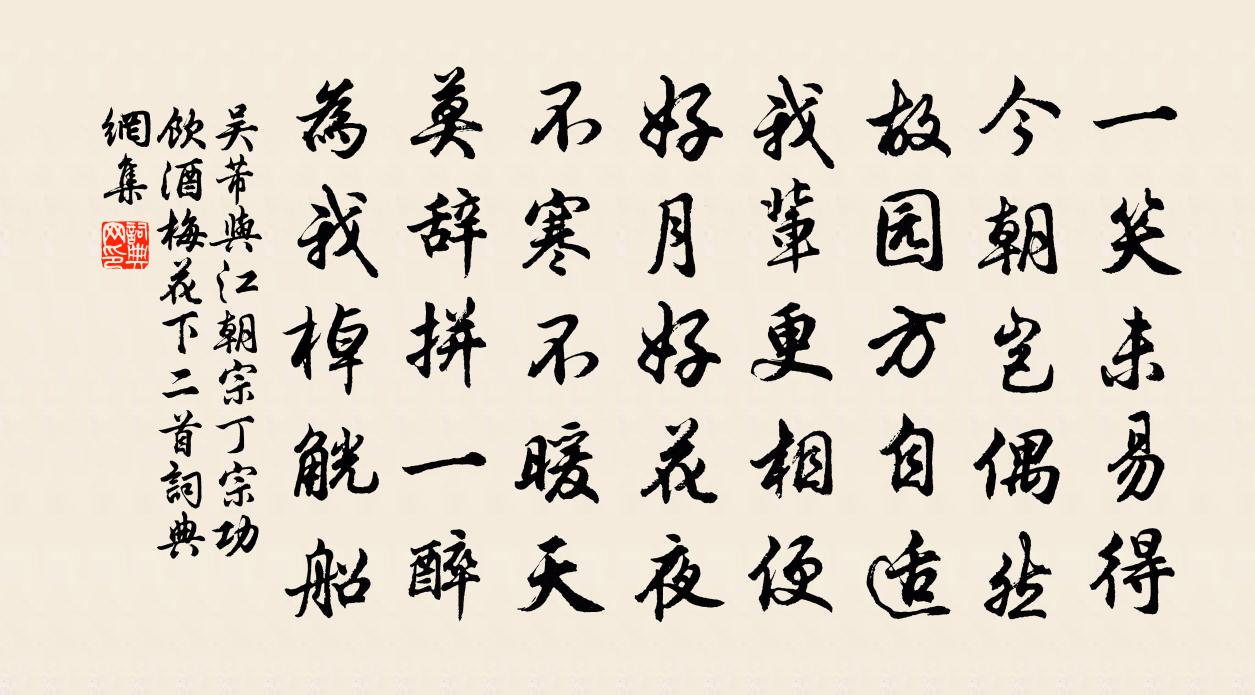 一笑未易得
今朝岂偶然
故园方自适
我辈更相便
好月好花夜
不寒不暖天
莫辞拼一醉
為我棹觥船
吴芾與江朝宗丁宗功
飲酒梅花下二首詞典
網集
詞典
网印